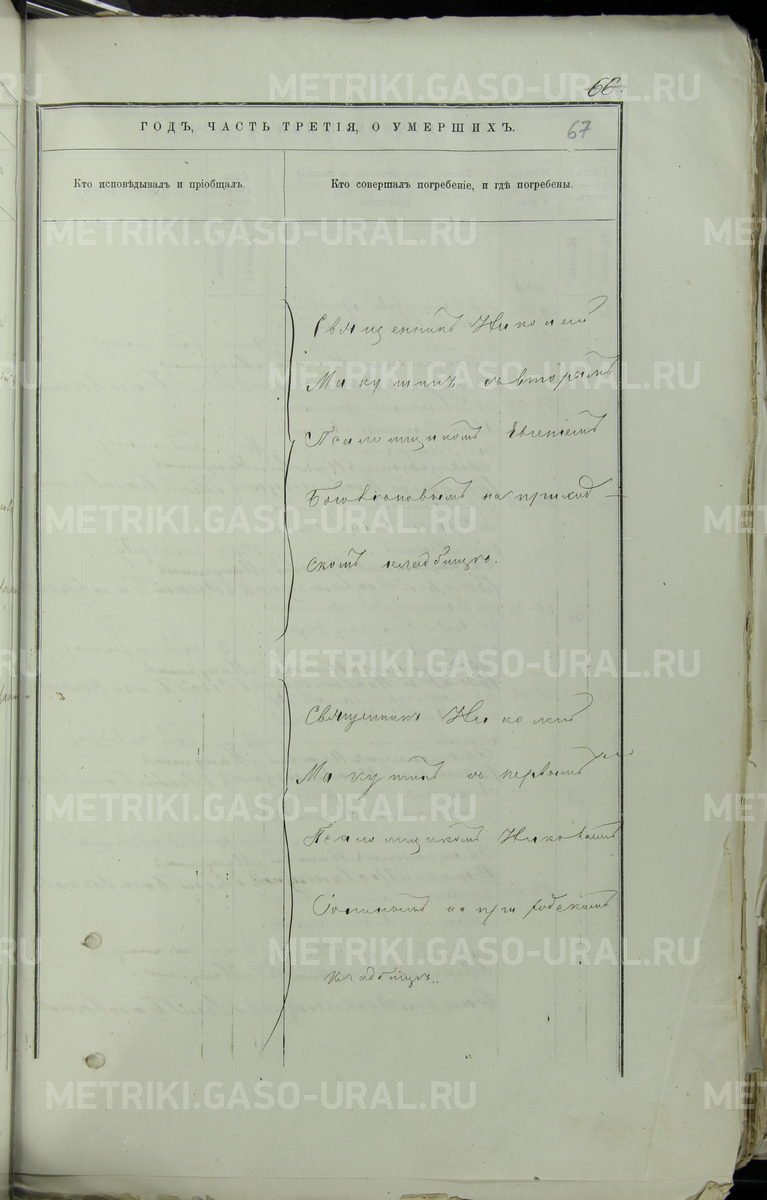 66.
ГОДЪ, ЧАСТЬ ТРЕТІЯ, О УМЕРШИХЪ.
67
Кто исповѣдывалъ и пріобщалъ.
Кто совершалъ погребеніе, и гдѣ погребены.
Священникъ Николай
Макушинъ съ вторымъ
Псаломщикомъ Евгеніемъ
на приход-
скомъ кладбищѣ.
Священникъ Николай
Макушинъ съ первымъ
Псаломщикомъ
на приходскомъ
кладбищѣ.
METRIKI.GASO-URAL.RU